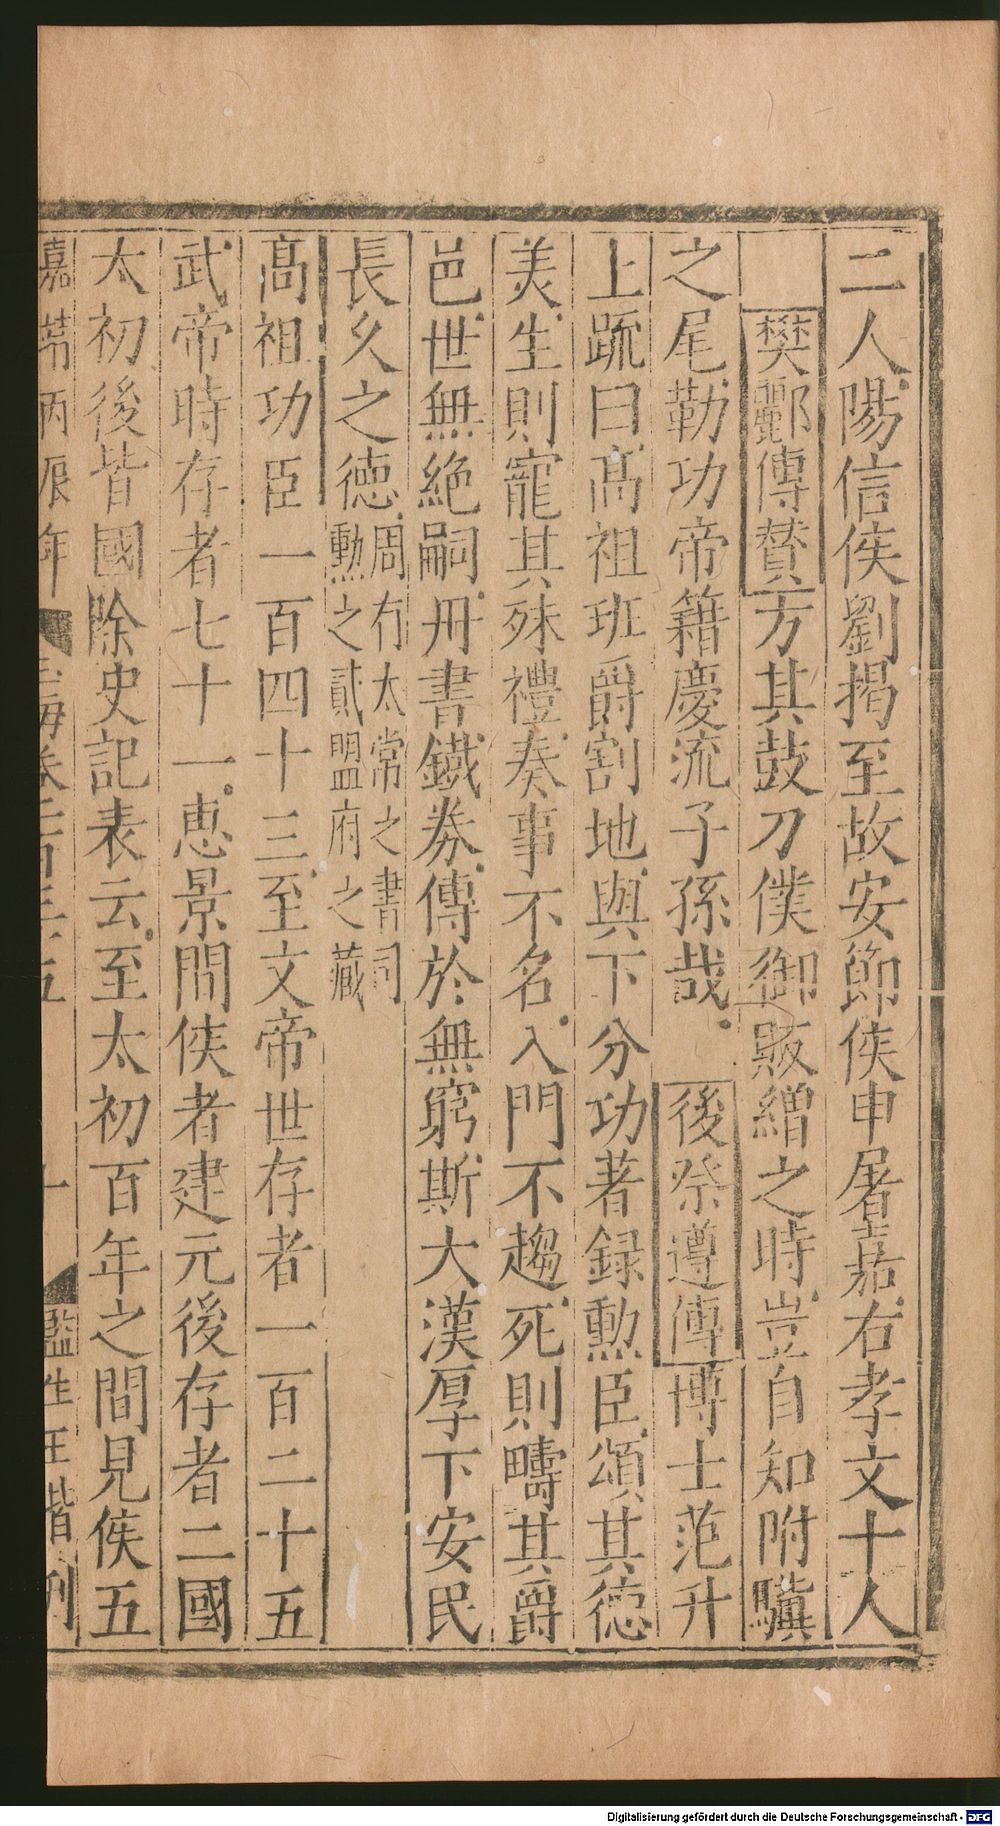 二人陽信侯劉揭至故安節侯申屠嘉右孝文十人
樊酈傳賛方其鼓刀僕御販繒之時豈自知附驥
之尾勒功帝籍慶流子孫哉 後祭遵傳博士范升
上䟽曰高祖班爵割地與下分功著録勲臣頌其德
美生則寵其殊禮奏事不名入門不趨死則疇其爵
邑世無絶嗣丹書鐵券傳於無窮斯大漢厚下安民
長久之徳周有太常之書司
勲之貳盟府之藏
高祖功臣一百四十三至文帝世存者一百二十五
武帝時存者七十一惠景間侯者建元後存者二國
太初後皆國除史記表云至太初百年之間見侯五
嘉靖丙辰年 玉海卷一百三十五 十 監生王楷刊
Digitalisierung gefördert durch die Deutsche Forschungsgemeinschaft - DFG